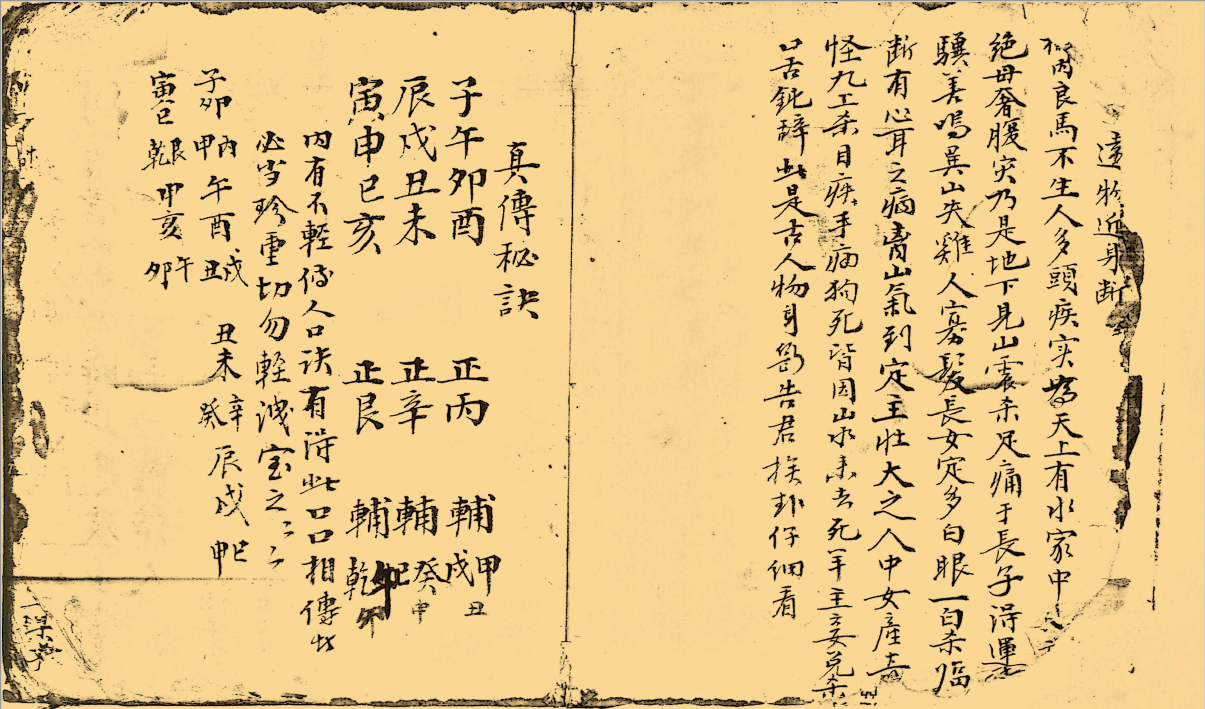 遠物近身断
丙良馬不生人多頭疾实為天上有水家中
绝毋奢腹灾乃是地下見山震杀足痛于長子得運
驥善鳴巽山失雞人寡髮長女定多白眼一白杀臨
断有心耳之病青山氣到定主壮大之人中女產
怪九工杀目疾手病狗死皆因山水未去死羊主妾兑杀
口舌鈍辞此是古人物身断告君挨卦仔细看
真傳秘訣
子午卯酉 正丙 輔甲戌丑
辰戌丑未 正辛 輔癸巳申
寅申巳亥 正艮 輔乾午卯
内有不輕傳人口訣有得此口口相傳
必当珍重切勿輕洩宝之
子卯 丙甲 午酉 戌丑 丑未 辛癸 辰戌 巳申
寅巳 艮乾 申亥 午卯